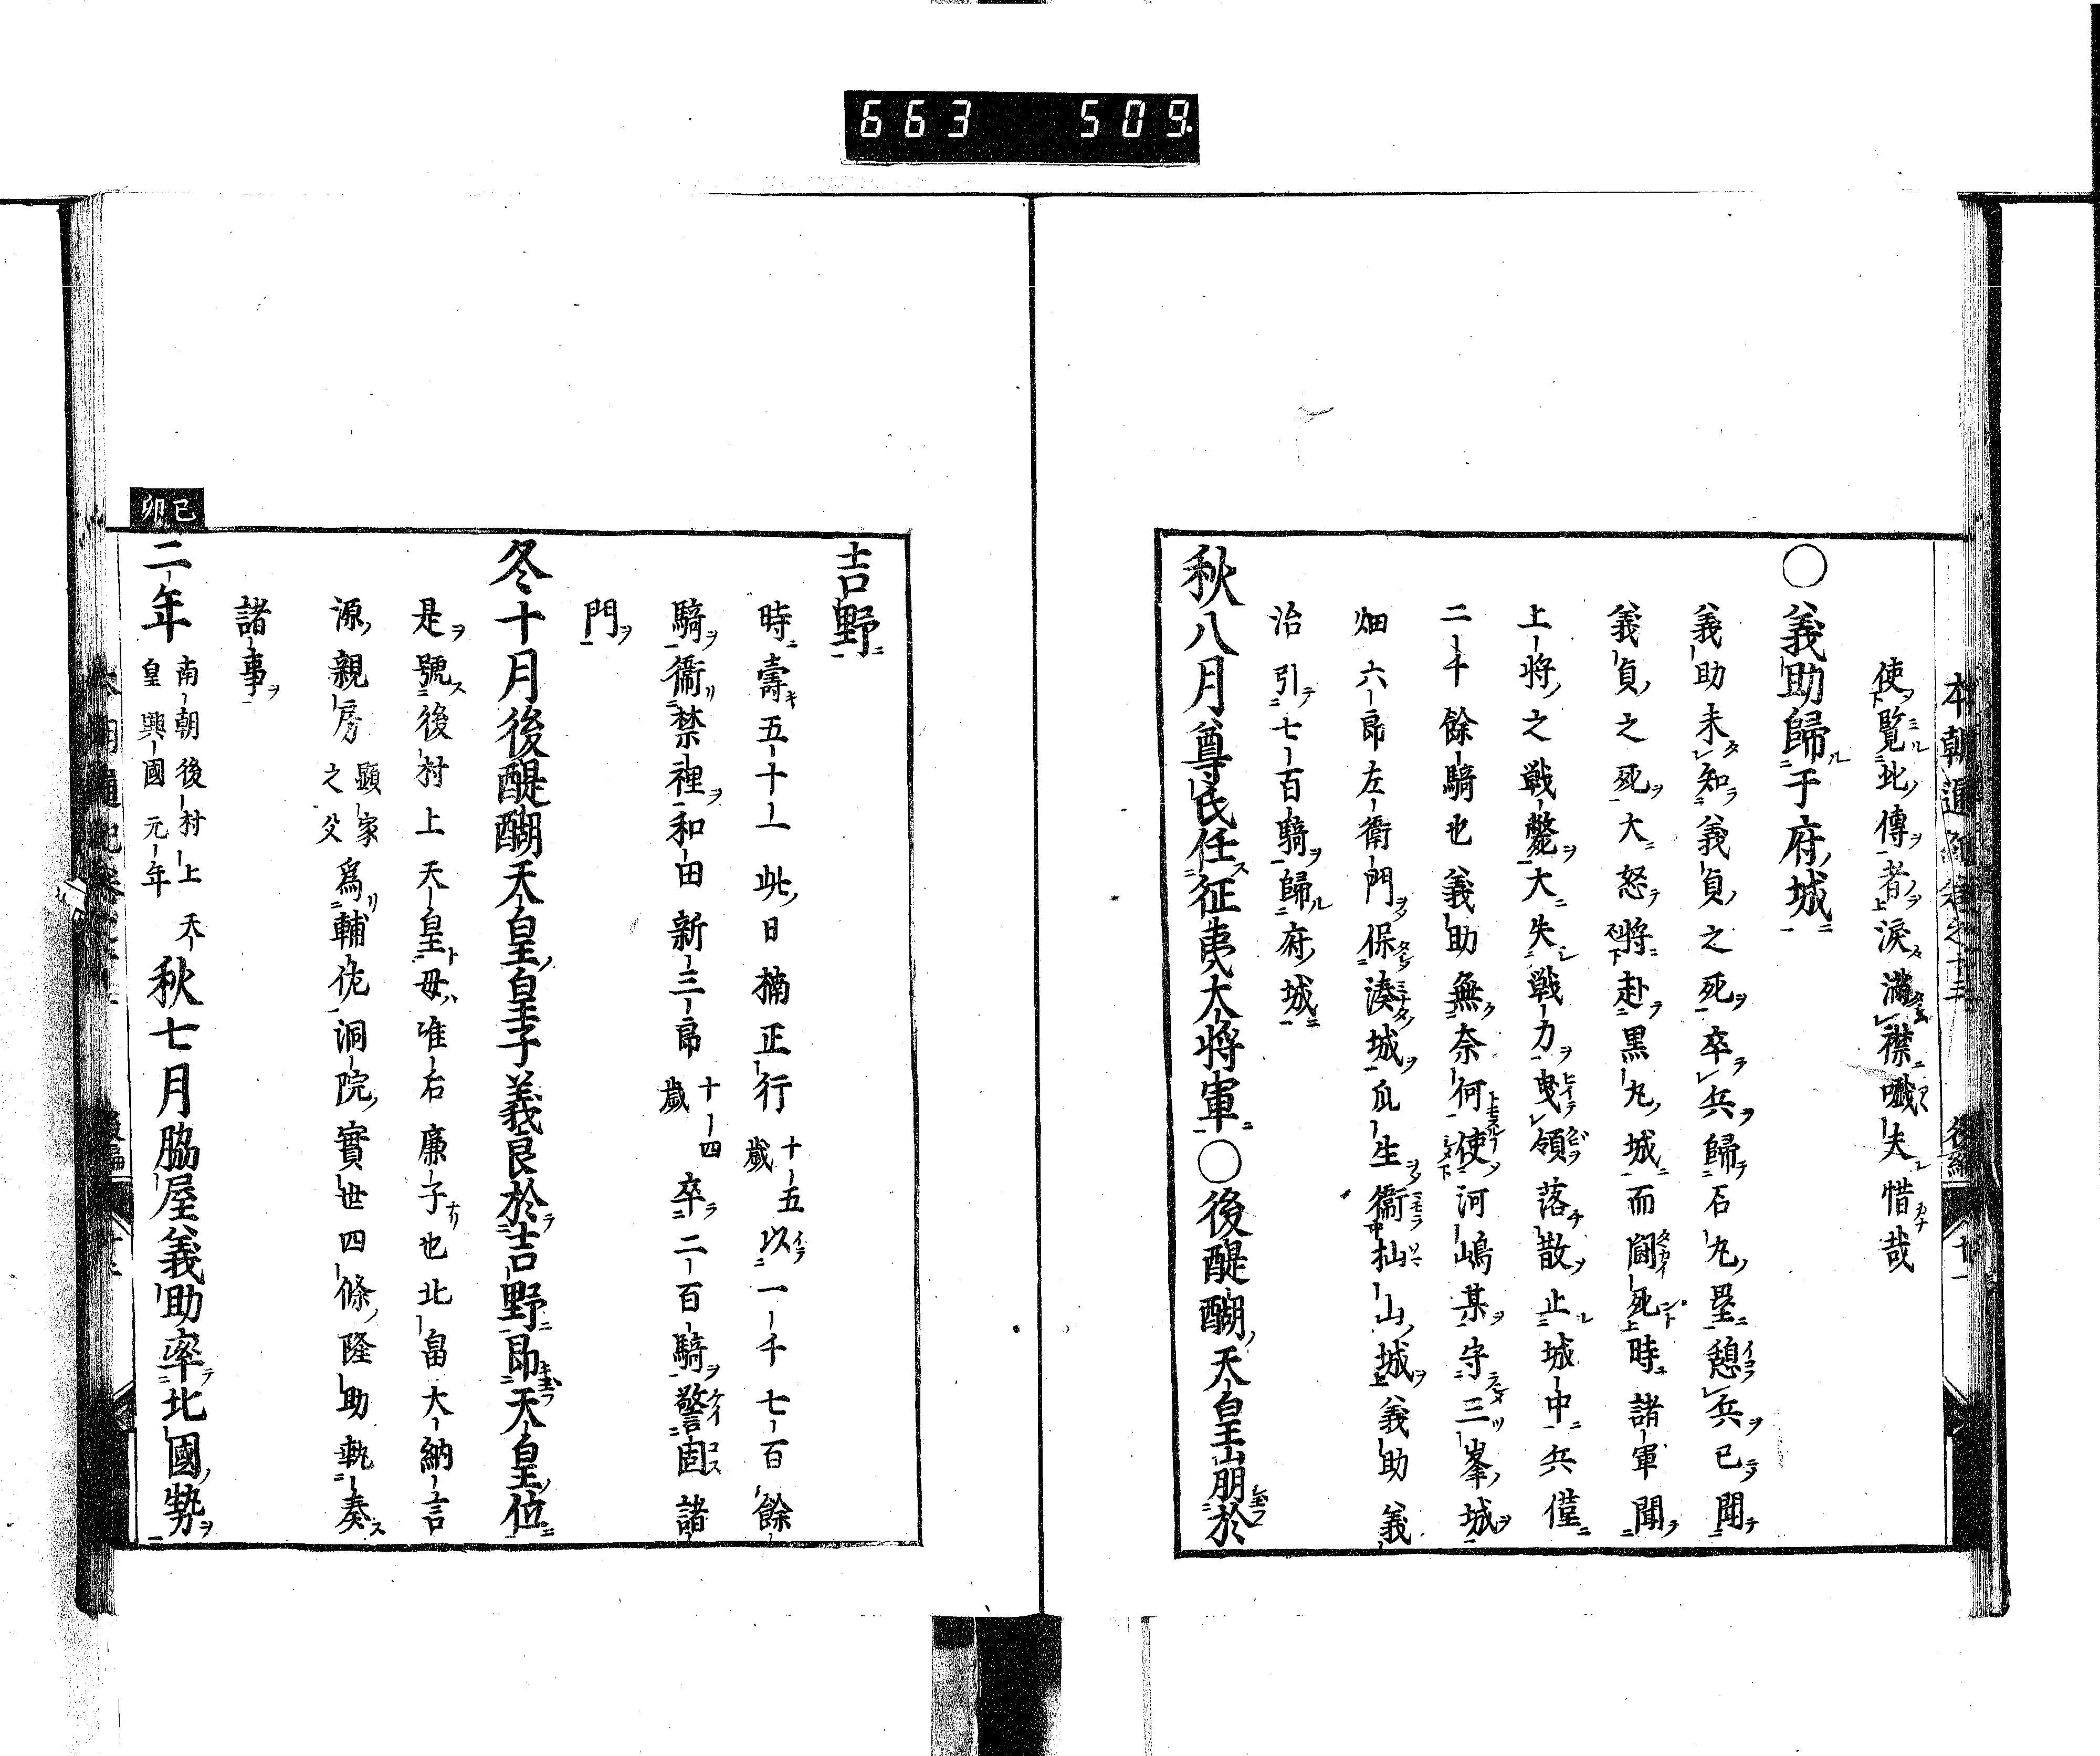 663 509.
使覽此傳者淚滿襟噬夫惜哉
○義助歸于府城
義助未知義貞之死卒兵歸石丸壘憩兵已聞
義貞之死大怒將赴黒丸城而鬪死時諸軍聞
上將之戰斃大失戰力曳領落散止城中兵僅
二千餘騎也義助無奈何使河嶋某守三峯城
畑六郎左衞門保湊城瓜生衞杣山城義助義
治引七百騎歸府城
秋八月尊氏任征夷大將軍○後醍醐天皇崩於
吉野
時壽五十一此日楠正行十五歲以一千七百餘
騎衞禁裡和田新三郎十四歲卒二百騎警固諸
門
冬十月後醍醐天皇皇子義良於吉野即天皇位
是號後村上天皇母准后廉子也北畠大納言
源親房顯家之父爲輔佐洞院實世四條隆助執奏
諸事
己卯
二年南朝後村上天皇興國元年秋七月脇屋義助率北國勢